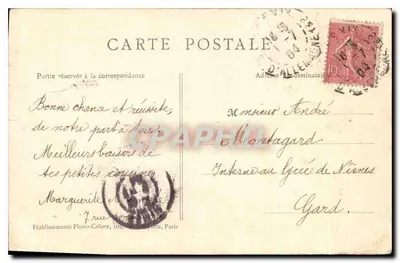 CARTE POSTALE
Partie réservée à la correspondance
Adresse du destinataire
Bonne chance et réussite,
de notre part à tous
Meilleurs baisers de
tes petites cousines
Marguerite
7 rue
Monsieur André
Montagard
Interne au Lycée de Nîmes
Gard.
Etablissements Photo-Colore, Paris
PARIS
CPArama